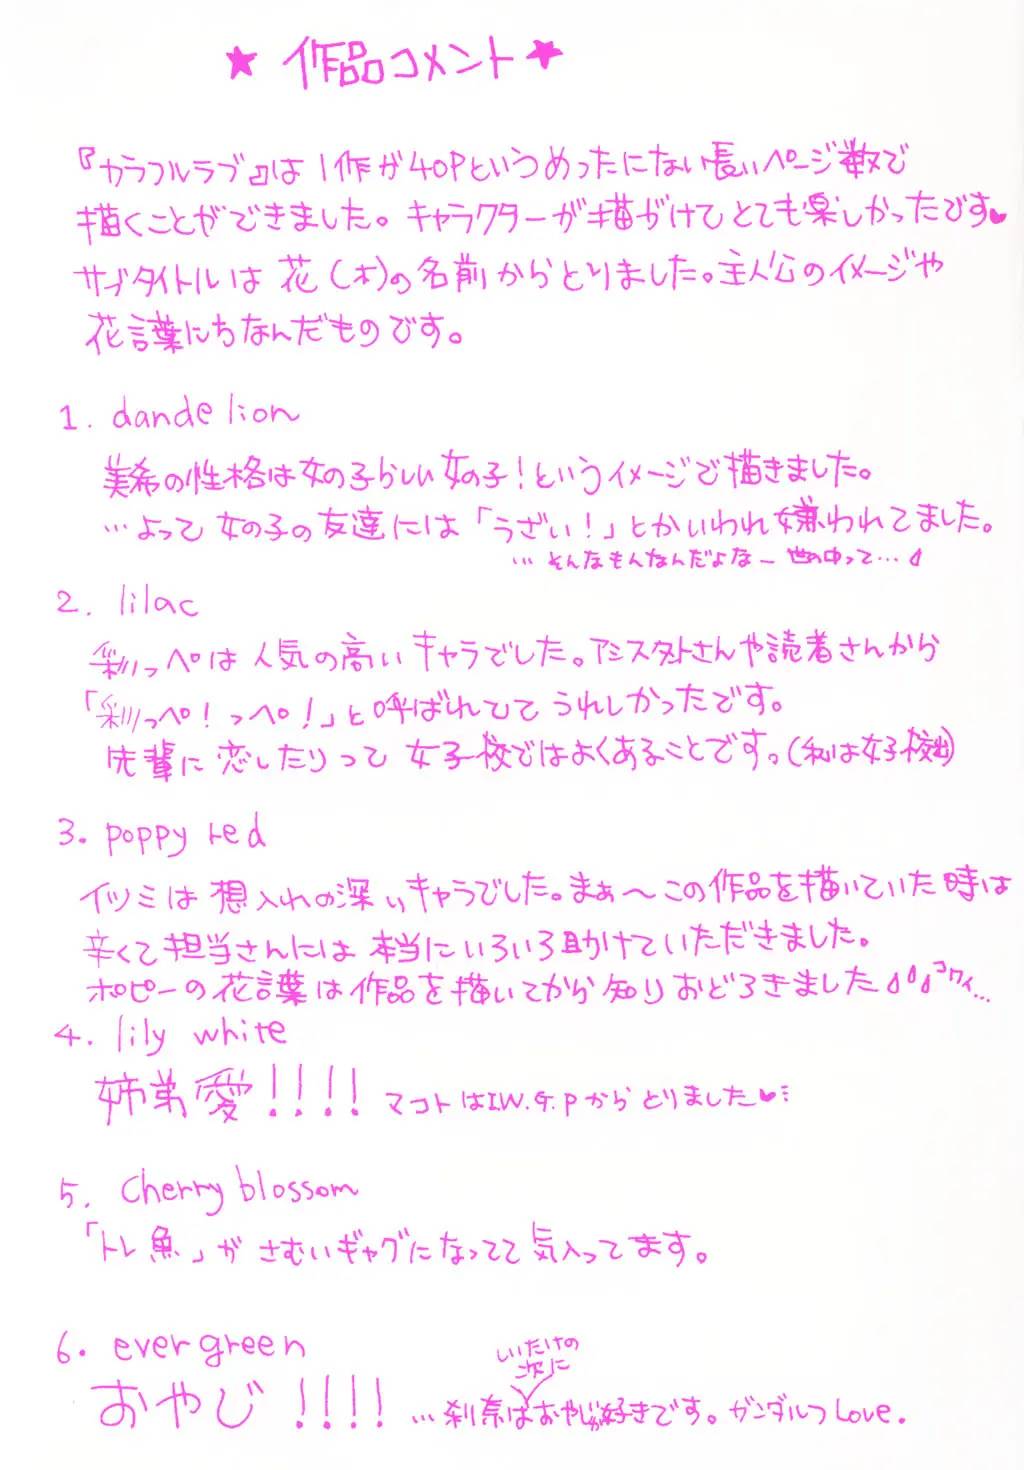 ★ 作品コメント ★
『カラフルラブ』は1作が40Pというめったにない長いページ数で
描くことができました。キャラクターが描がけてとても楽しかったです♥
サブタイトルは花(木)の名前からとりました。主人公のイメージや
花言葉にちなんだものです。
1. dandelion
美希の性格は女の子らしい女の子!というイメージで描きました。
…よって女の子の友達には「うざい!」とかいわれ嫌われてました。
…そんなもんなんだよなー世の中って…
2. lilac
彩っぺは人気の高いキャラでした。アシスタントさんや読者さんから
「彩っぺ!っぺ!」と呼ばれてて うれしかったです。
先輩に恋したりって女子校ではよくあることです。(私は女子校出)
3. poppy red
イツミは想入れの深いキャラでした。まぁ〜この作品を描いていた時は
辛くて担当さんには本当にいろいろ助けていただきました。
ポピーの花言葉は作品を描いてから知りおどろきました コワイ…
4. lily white
姉弟愛!!!! マコトはI.W.G.Pからとりました♥
5. Cherry blossom
「トレ魚」がさむいギャグになってて気入ってます。
6. evergreen
いたけの
次に
おやじ!!!! …刹奈はおやじが好きです。ガンダルフLove.